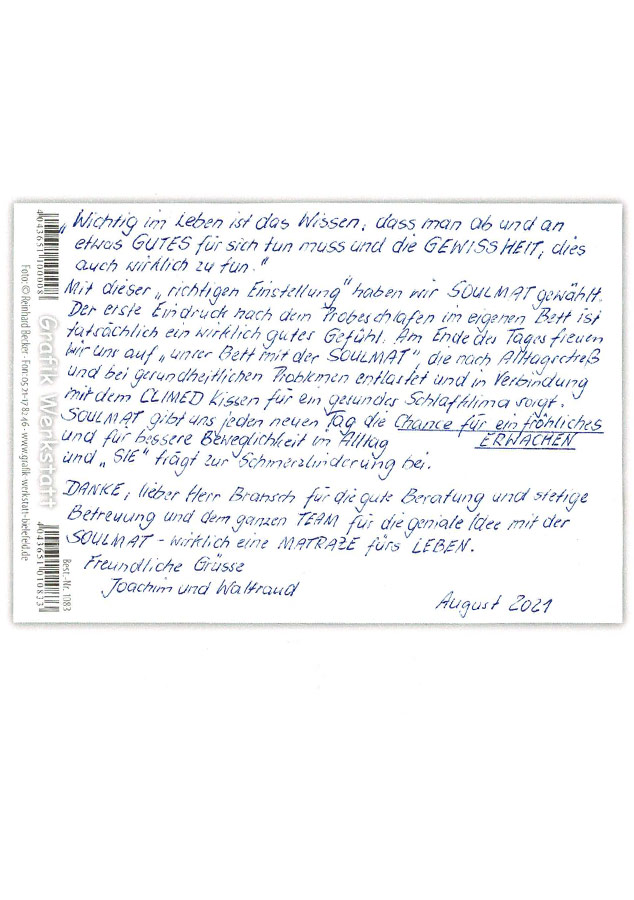 „Wichtig im Leben ist das Wissen, dass man ab und an
etwas GUTES für sich tun muss und die GEWISSHEIT, dies
auch wirklich zu tun."
Mit dieser „richtigen Einstellung" haben wir SOULMAT gewählt.
Der erste Eindruck nach dem Probeschlafen im eigenen Bett ist
tatsächlich ein wirklich gutes Gefühl. Am Ende des Tages freuen
wir uns auf „unser Bett mit der SOULMAT", die nach Alltagsstreß
und bei gesundheitlichen Problemen entlastet und in Verbindung
mit dem CLIMED Kissen für ein gesundes Schlafklima sorgt.
SOULMAT gibt uns jeden neuen Tag die Chance für ein fröhliches
und für bessere Beweglichkeit im Alltag ERWACHEN
und „SIE" trägt zur Schmerzlinderung bei.
DANKE, lieber Herr Bransch für die gute Beratung und stetige
Betreuung und dem ganzen TEAM für die geniale Idee mit der
SOULMAT - wirklich eine MATRAZE fürs LEBEN.
Freundliche Grüsse
Joachim und Waltraud
August 2021
Grafik Werkstatt
Foto: © Reinhard Becker · Fon: 05 21-17 82 46 · www.grafik-werkstatt-bielefeld.de
Best.-Nr. 1083
4 043651 010833